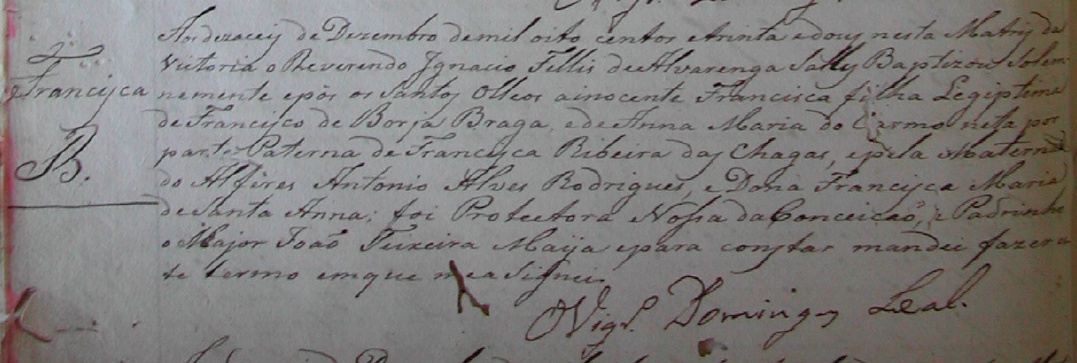 Aos dezacey de Dezembro de mil oito centos etrinta edouy nesta Matriz da
Victoria o Reverendo Ignacio Fellis de Alvarenga Salles Baptizou Solem-
Francisca
nemente epôs os Santos Olleos ainocente Francisca filha Legiptima
de Francisco de Borja Braga, ede Anna Maria do Carmo neta por
B.
parte Paterna de Francisca Ribeira das Chagas, epela Materna
do Alferes Antonio Alves Rodrigues, e Dona Francisca Maria
de Santa Anna; foi Protectora Nossa da Conceicaõ, e Padrinho
o Major Joaõ Teixeira Maija epara constar mandei fazer es
te termo emque me aSignei.
Vigr.º Domingos Leal.